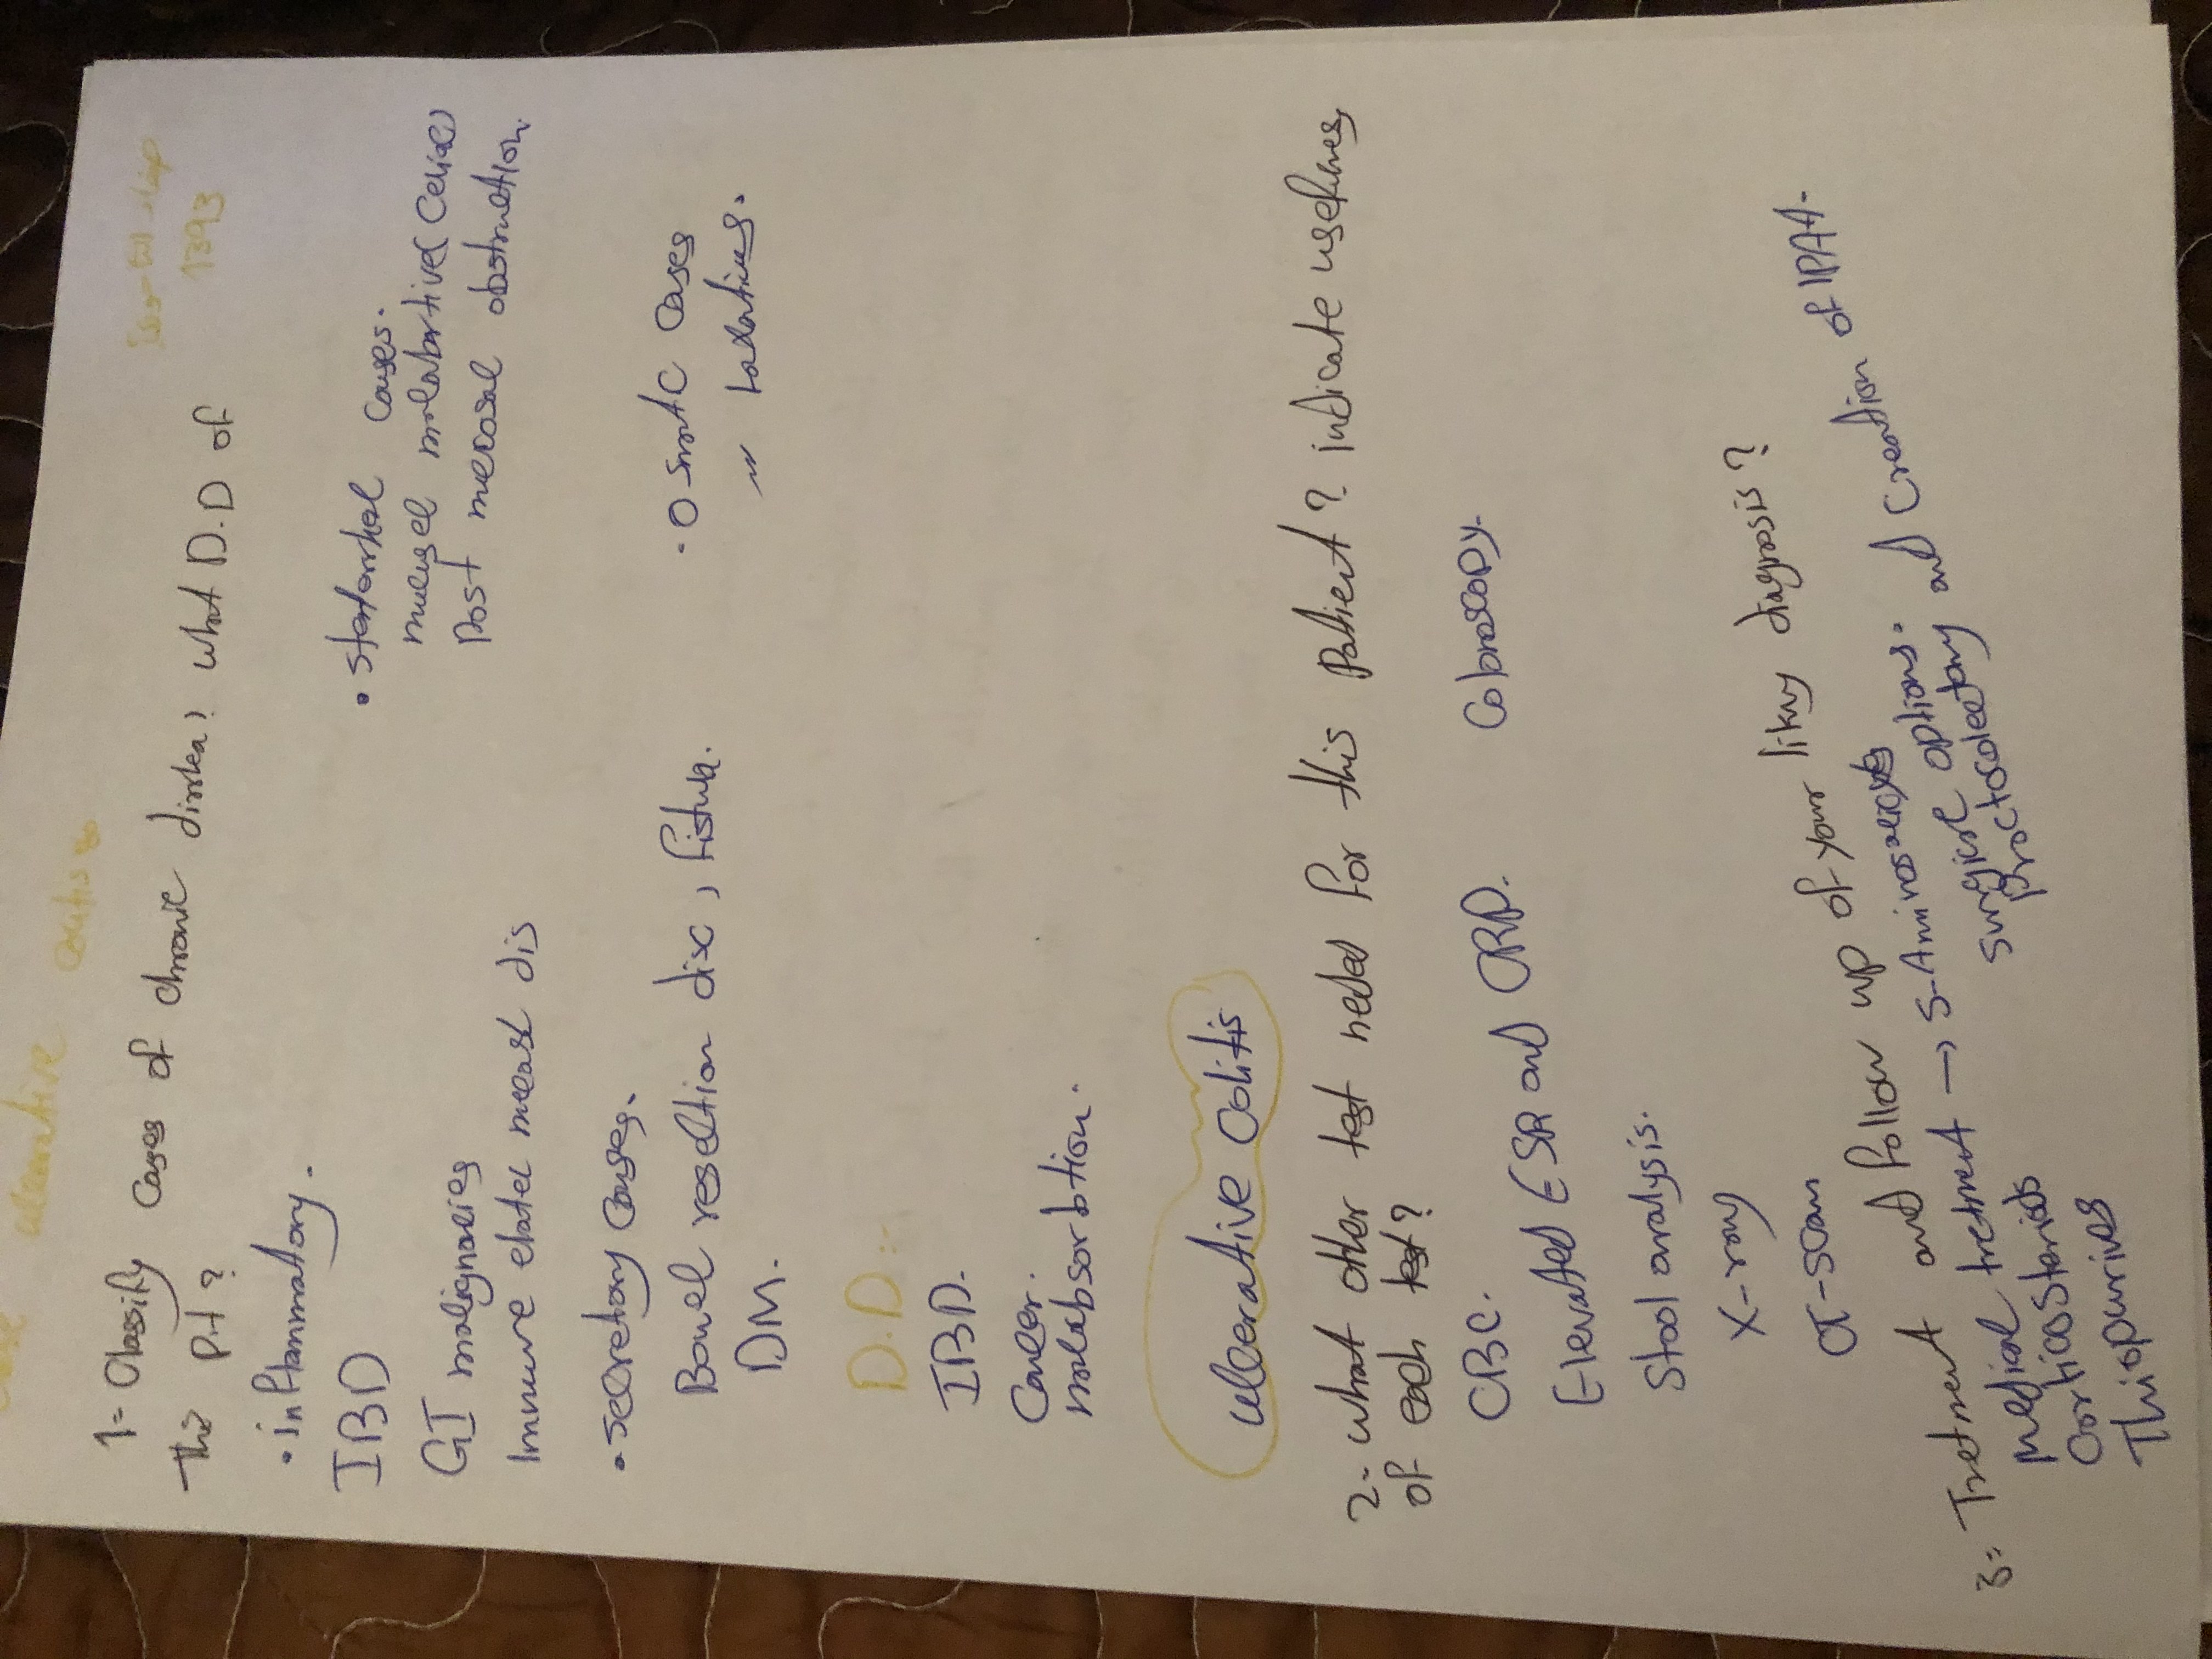 ulcerative colitis
1393
1- Classify Cases of chronic diarrhea? what D.D of
this pt?
• inflammatory.
IBD
GI malignancies
Immune elated mucosal dis
• steatorrheal causes.
malabsorbtive (Celiac)
Post mucosal obstruction.
• secretory causes.
Bowel resection disc, fistula.
DM.
• Osmotic cases
laxatives.
D.D:-
IBD.
Cancer.
malabsorbtion.
ulcerative Colitis
2- what other test needed for this patient? indicate usefulnes
of each test?
CBC.
Elevated ESR and CRP.
Colonoscopy.
Stool analysis.
X-ray
CT-scan
3- Tretment and follow up of your likly diagnosis?
medical tretment → 5-Aminosalicylates
Corticosteriods
Thiopurines
surgical options.
proctocolectomy and Creation of IPAA.